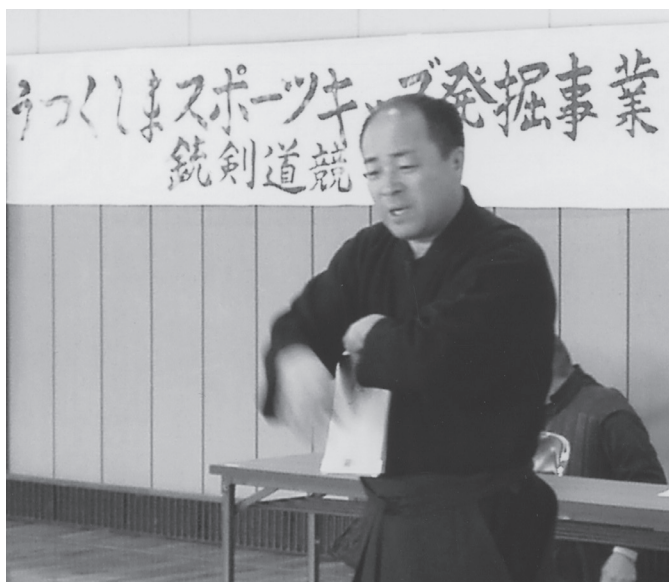 うつくしまスポーツキッズ発掘事業
銃剣道競